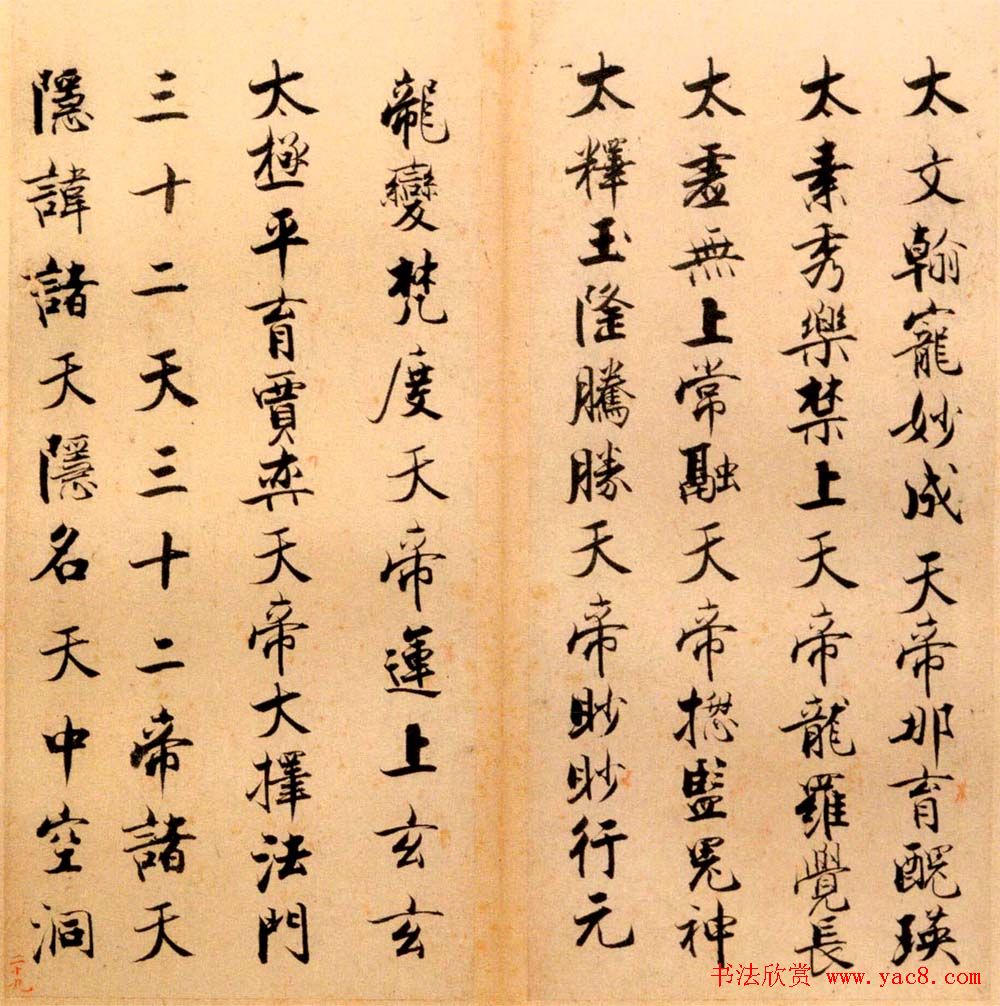 太文翰寵妙成天帝那育醜瑛
太素秀樂禁上天帝龍羅覺長
太虛無上常融天帝摠監鬼神
太釋玉隆騰勝天帝眇眇行元
龍變梵度天帝運上玄玄
太極平育賈奕天帝大擇法門
三十二天三十二帝諸天
隱諱諸天隱名天中空洞
二十九
书法欣赏 www.yac8.com